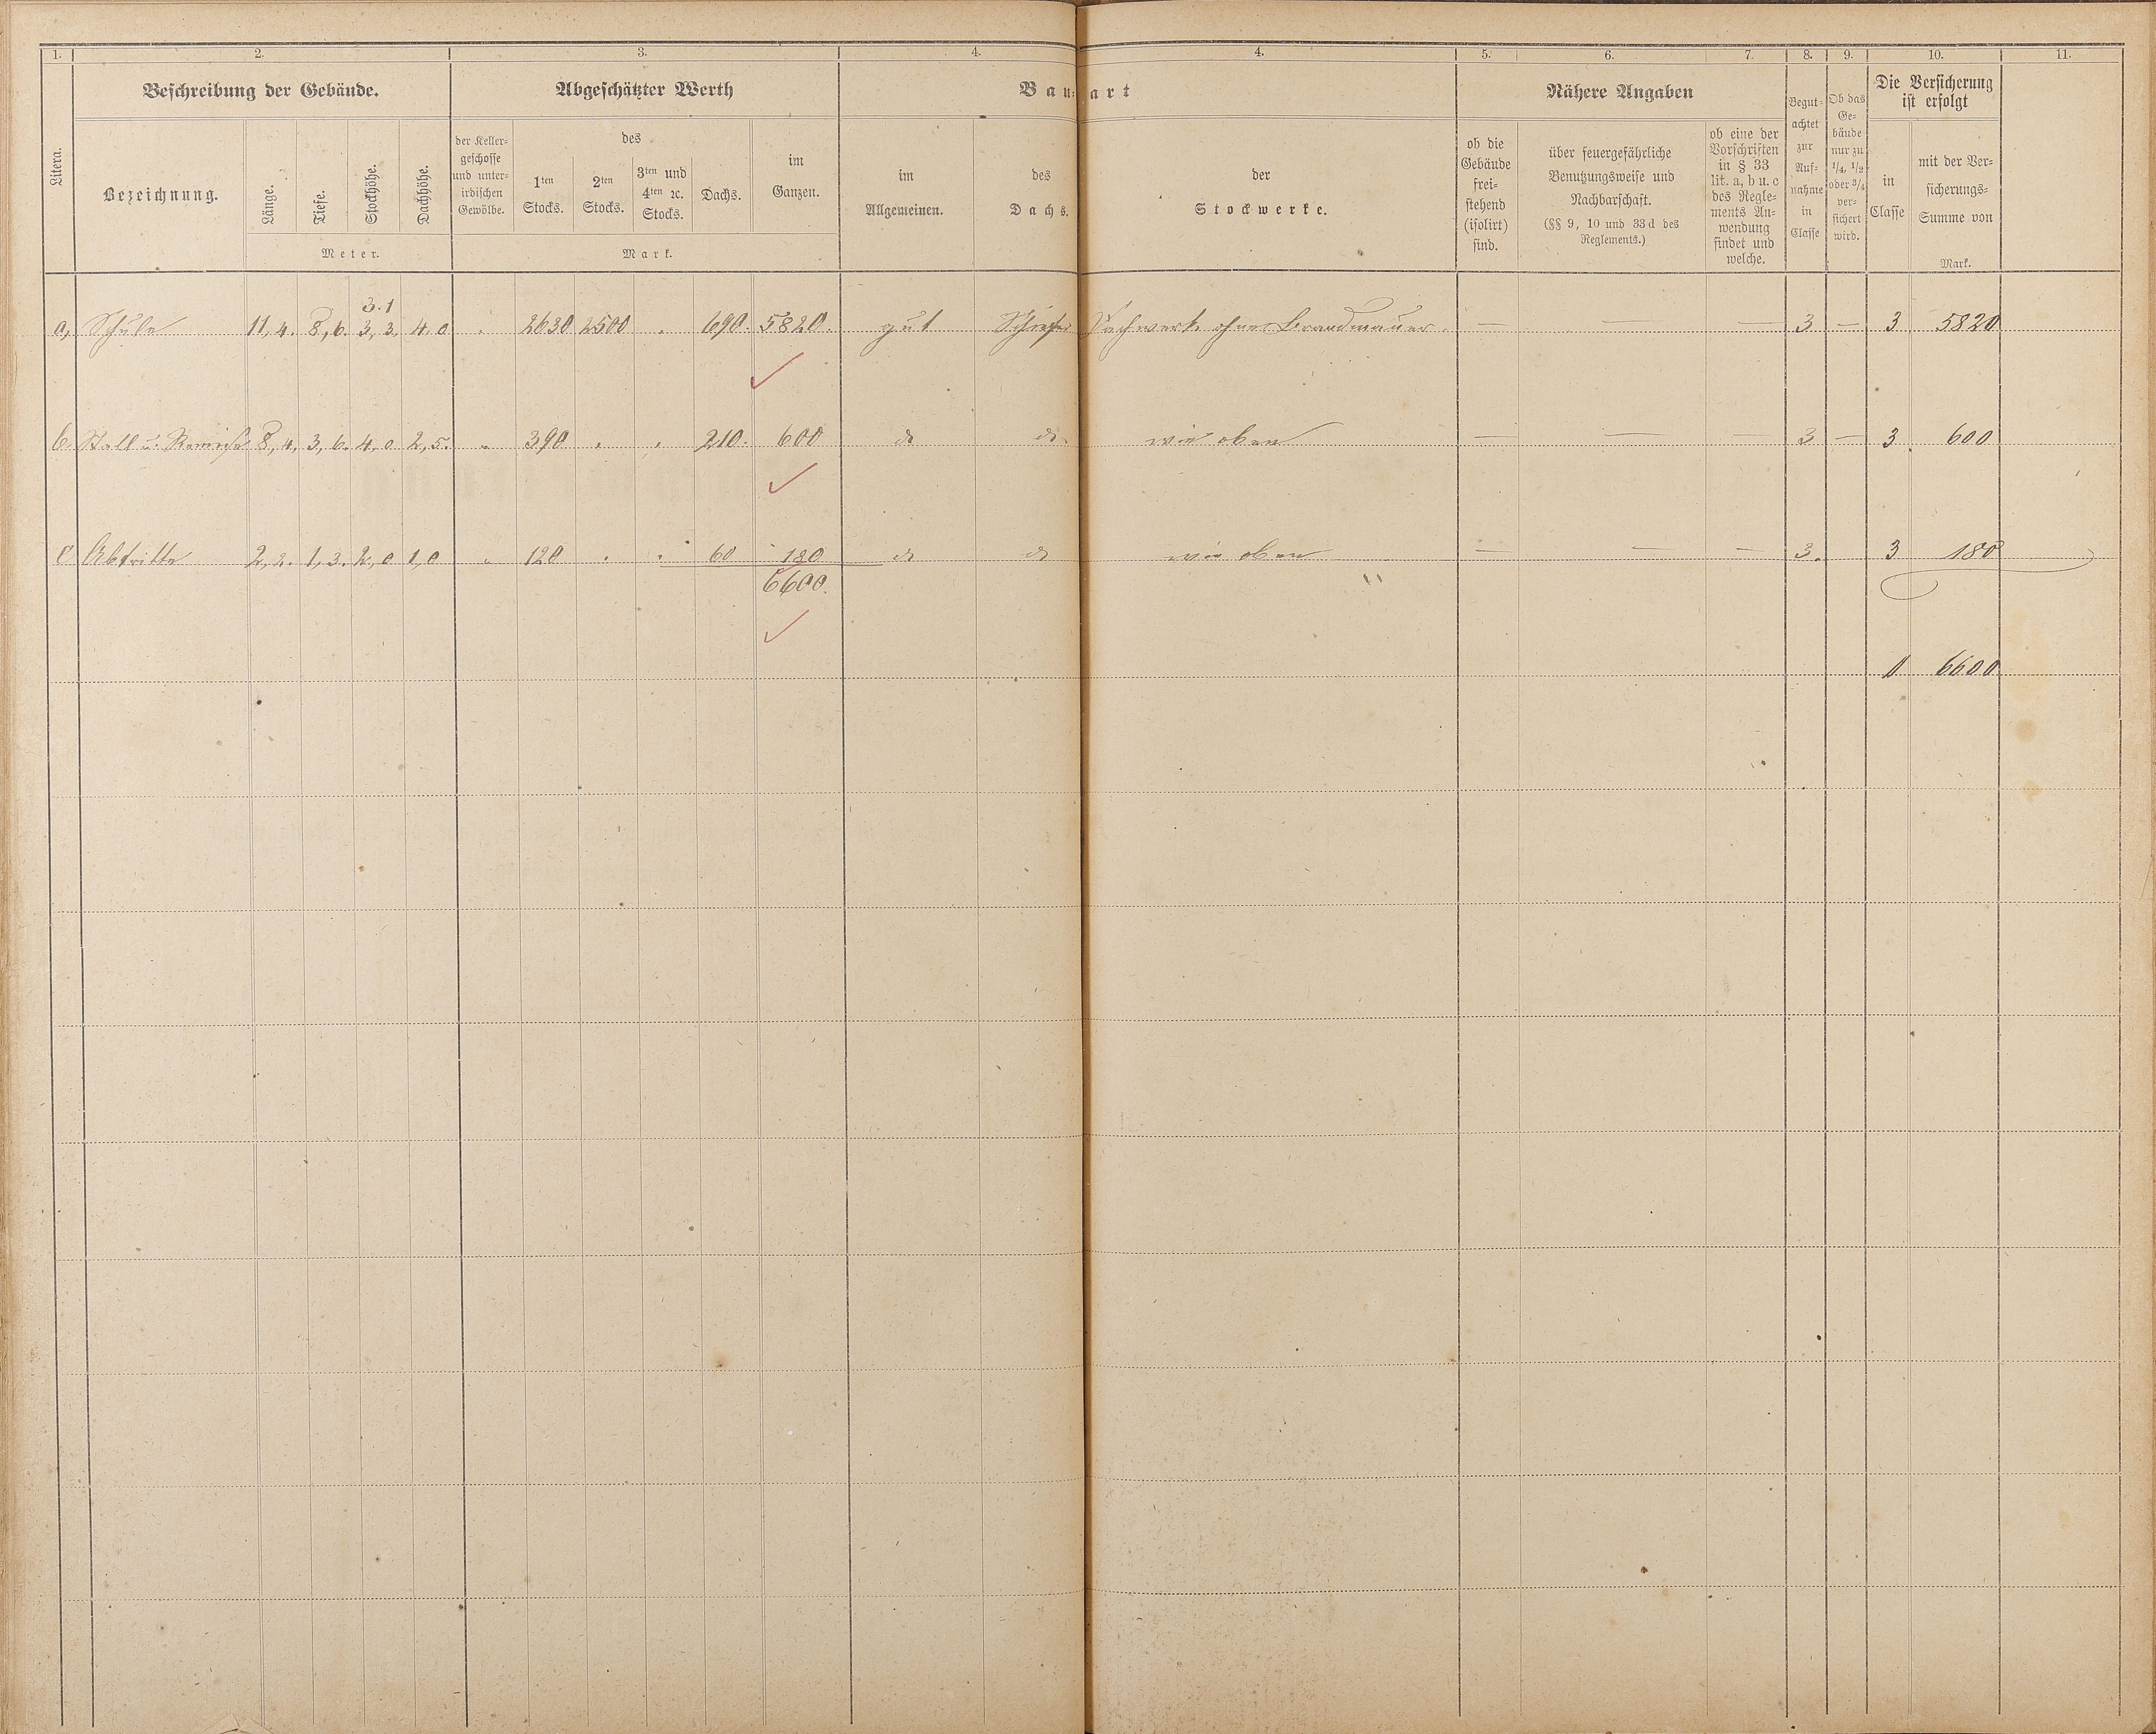 1. 2. 3. 4. 4. 5. 6. 7. 8. 9. 10. 11.
Litera.
Beschreibung der Gebäude.
Bezeichnung.
Länge. Tiefe. Stockhöhe. Dachhöhe.
Meter.
Abgeschätzter Werth
der Keller-
geschosse
und unter-
irdischen
Gewölbe.
des
1ten
Stocks.
2ten
Stocks.
3ten und
4ten ꝛc.
Stocks.
Dachs.
im
Ganzen.
Mark.
Bau-
art
im
Allgemeinen.
des
Dachs.
der
Stockwerke.
Nähere Angaben
ob die
Gebäude
frei-
stehend
(isolirt)
sind.
über feuergefährliche
Benutzungsweise und
Nachbarschaft.
(§§ 9, 10 und 33d des
Reglements.)
ob eine der
Vorschriften
in § 33
lit. a, b u. c
des Regle-
ments An-
wendung
findet und
welche.
Begut-
achtet
zur
Auf-
nahme
in
Classe
Ob das
Ge-
bäude
nur zu
1/4, 1/2
oder 3/4
ver-
sichert
wird.
Die Versicherung
ist erfolgt
in
Classe
mit der Ver-
sicherungs-
Summe von
Mark.
3.1
a, Schule 11,4. 8,6. 3,3. 4.0 „ 2630 2500 „ 690. 5820. gut Schiefer Fachwerk ohne Brandmauer. — — — 3 — 3 5820
b. Stall u. Remise 8,4. 3,6. 4,0 2,5. „ 390 „ „ 210. 600 do do. wie oben — — — 3 — 3 600
c Abtritte 2,2. 1,3. 2,0 1,0 „ 120 „ „ 60 180 do do wie oben — — — 3. 3 180
6600.
6600